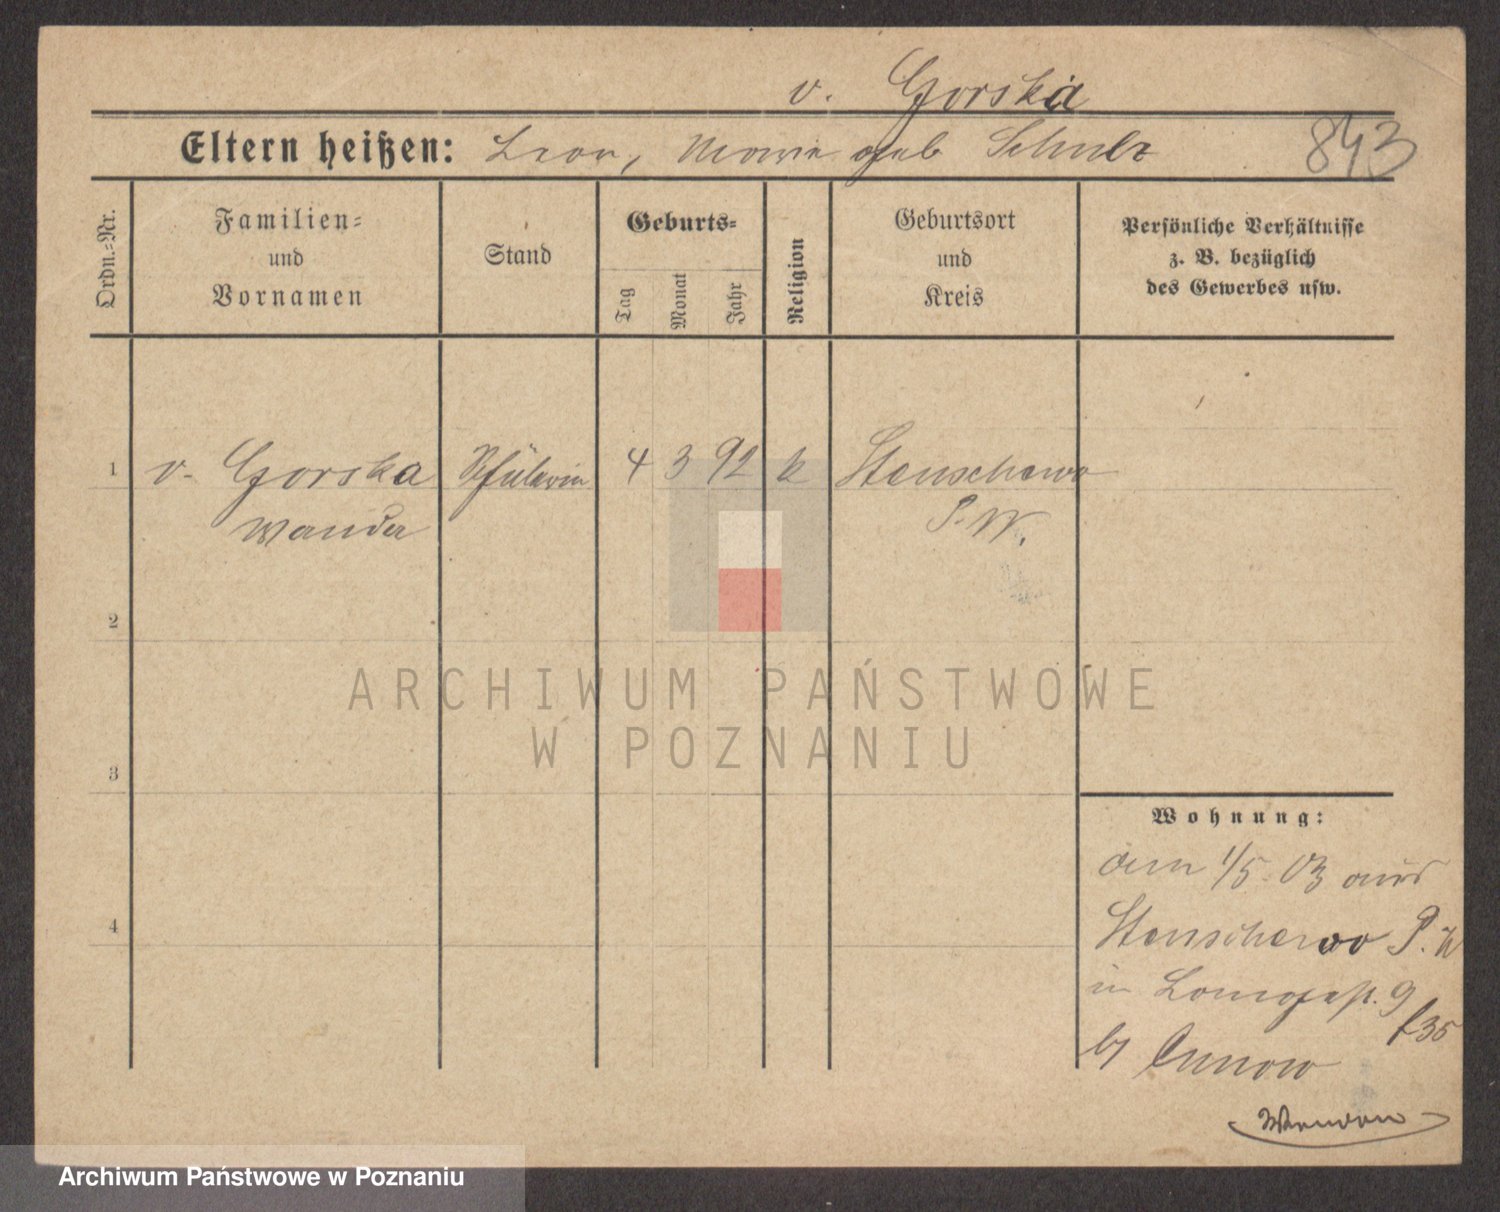 v. Gorska
Eltern heißen: Leon, Maria geb Schulz
843
Ordn.=Nr.
Familien=
und
Vornamen
Stand
Geburts=
Tag
Monat
Jahr
Religion
Geburtsort
und
Kreis
Persönliche Verhältnisse
z. B. bezüglich
des Gewerbes usw.
1 v. Gorska Schülerin 4 3 92 k Stenschewo
Wanda P. W.
2
3
4
Wohnung:
am 1/5. 03 aus
Stenschewo P. W
in 9
f 35
by Cunow
ARCHIWUM PAŃSTWOWE
W POZNANIU
Archiwum Państwowe w Poznaniu